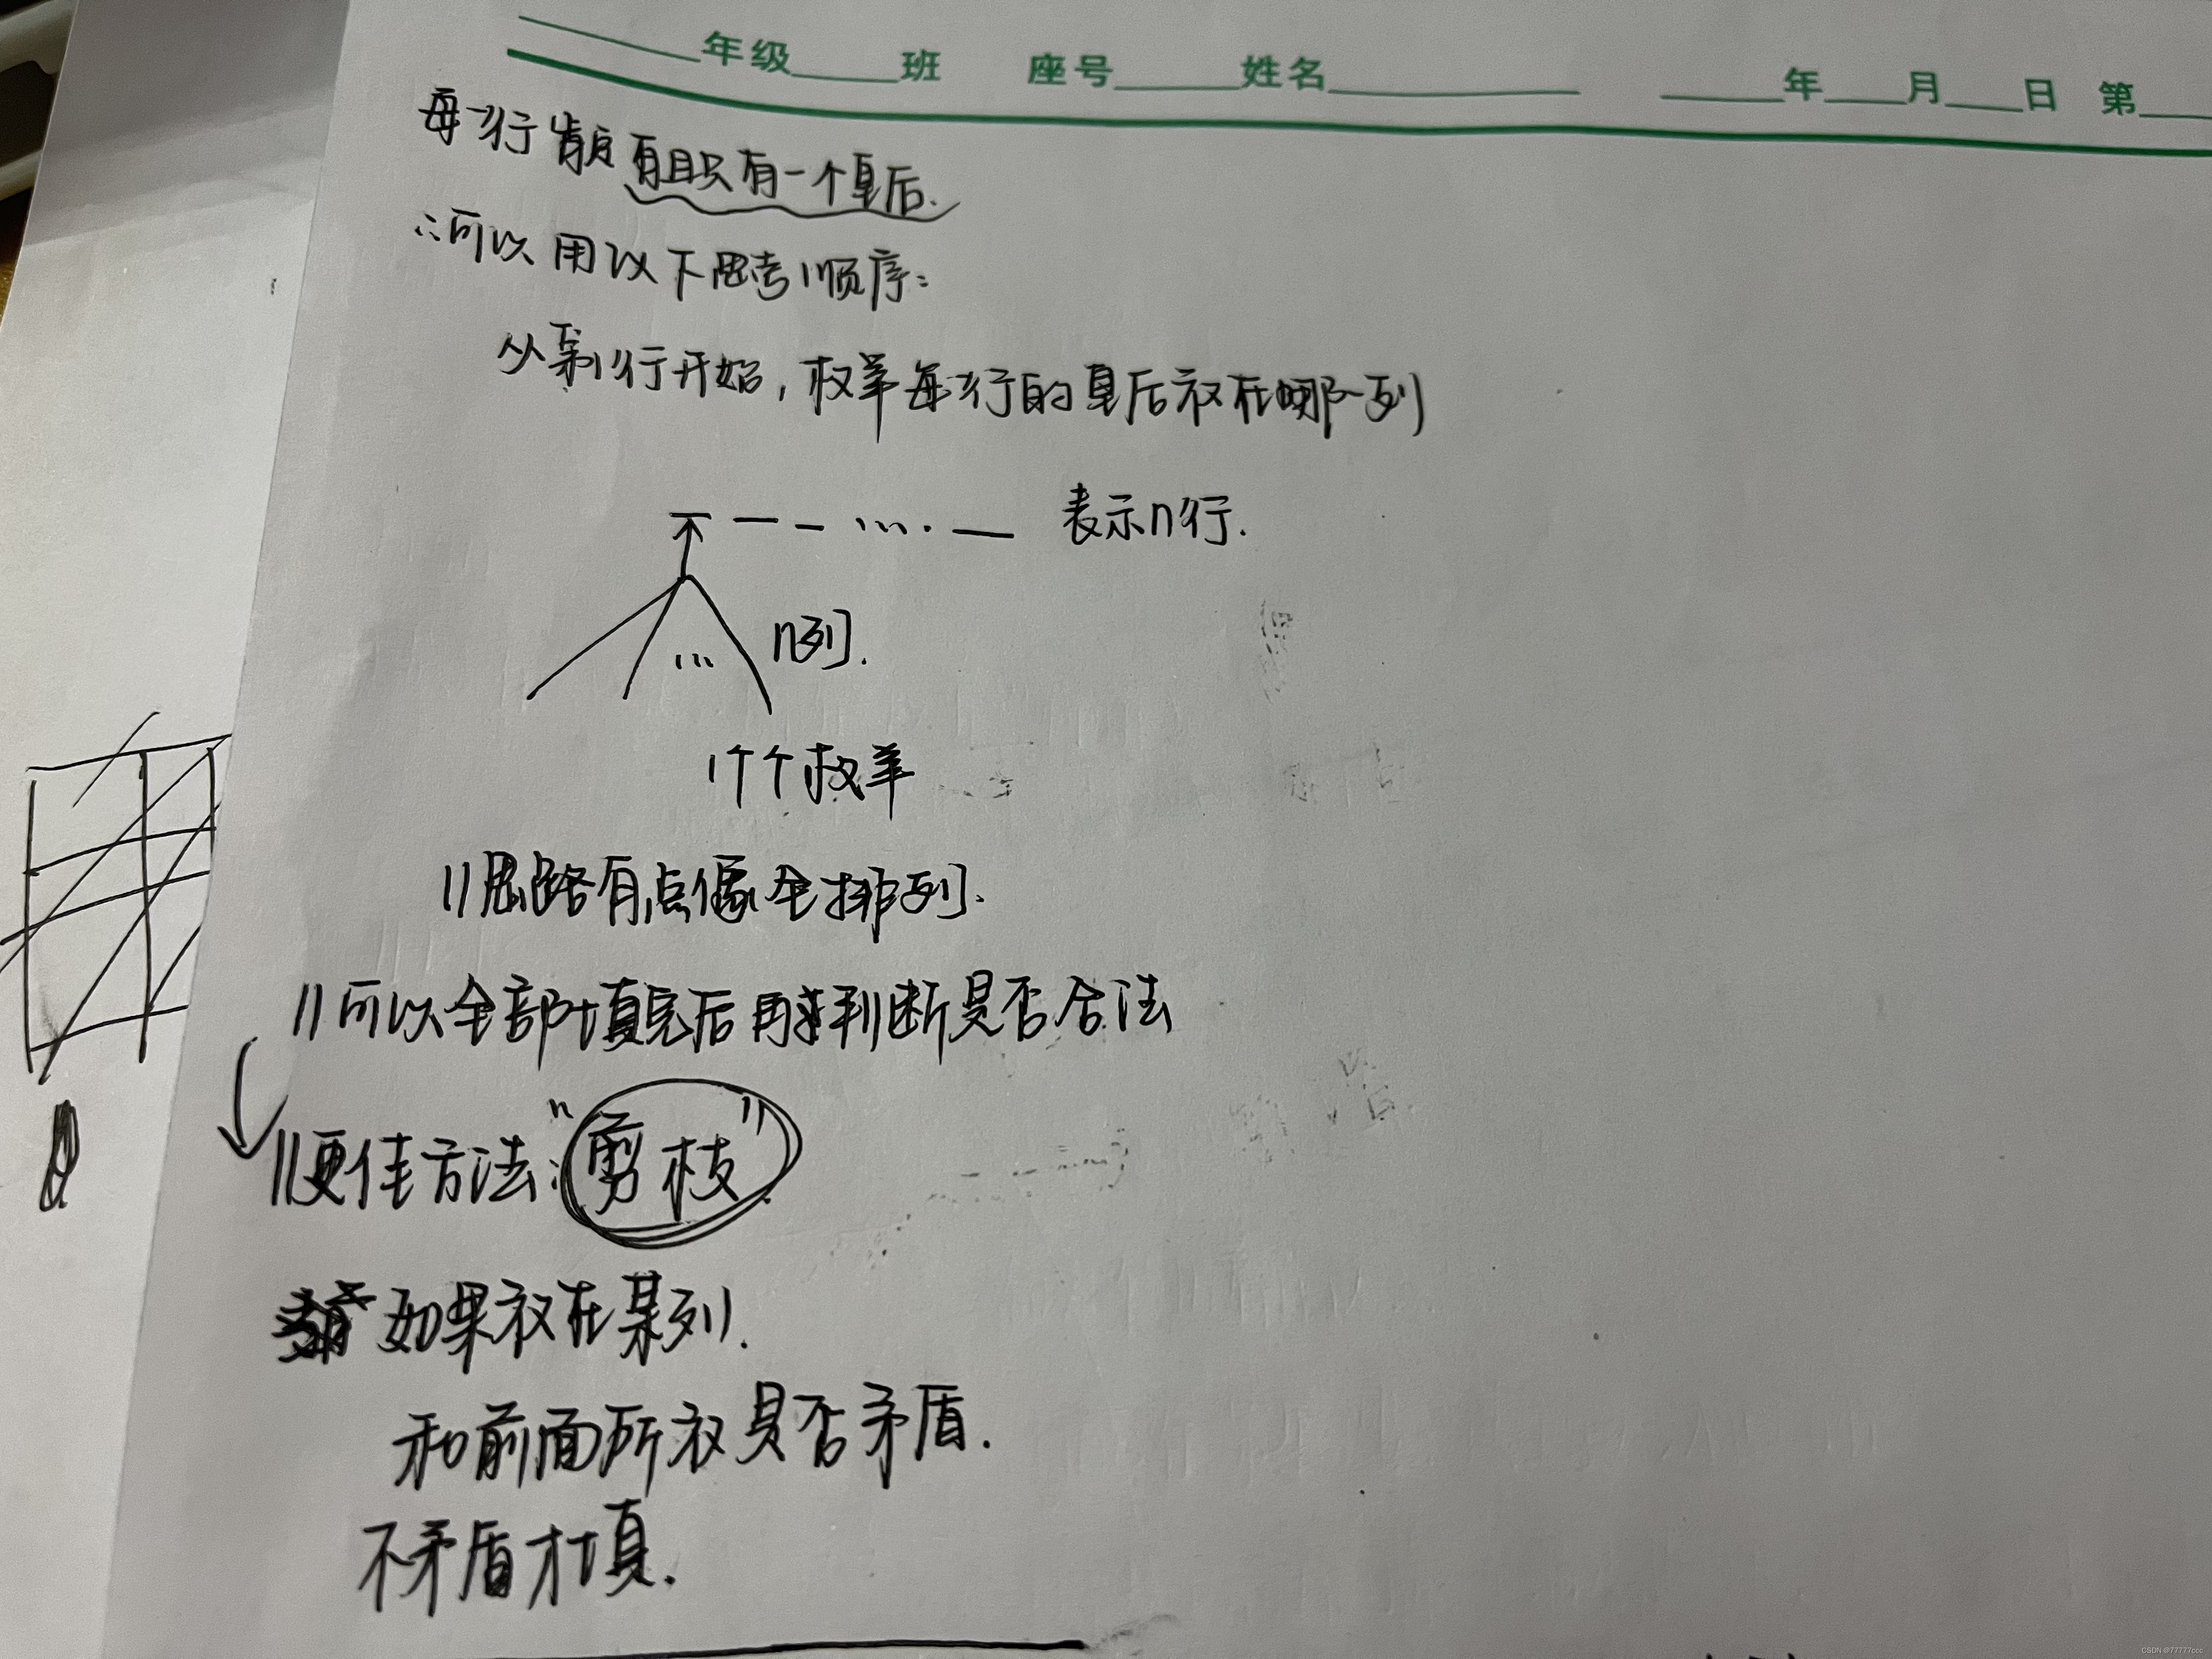 年级 班 座号 姓名 年 月 日 第
每一行肯定有且只有一个皇后.
∴可以用以下思考顺序:
从第1行开始,枚举每一行的皇后放在哪一列
… 表示n行.
… n列.
个枚举
//思路有点像全排列.
//可以全部填完后再来判断是否合法
//更佳方法:"剪枝"
如果放在某列.
和前面所放是否矛盾.
不矛盾才填.
CSDN @77777ccc